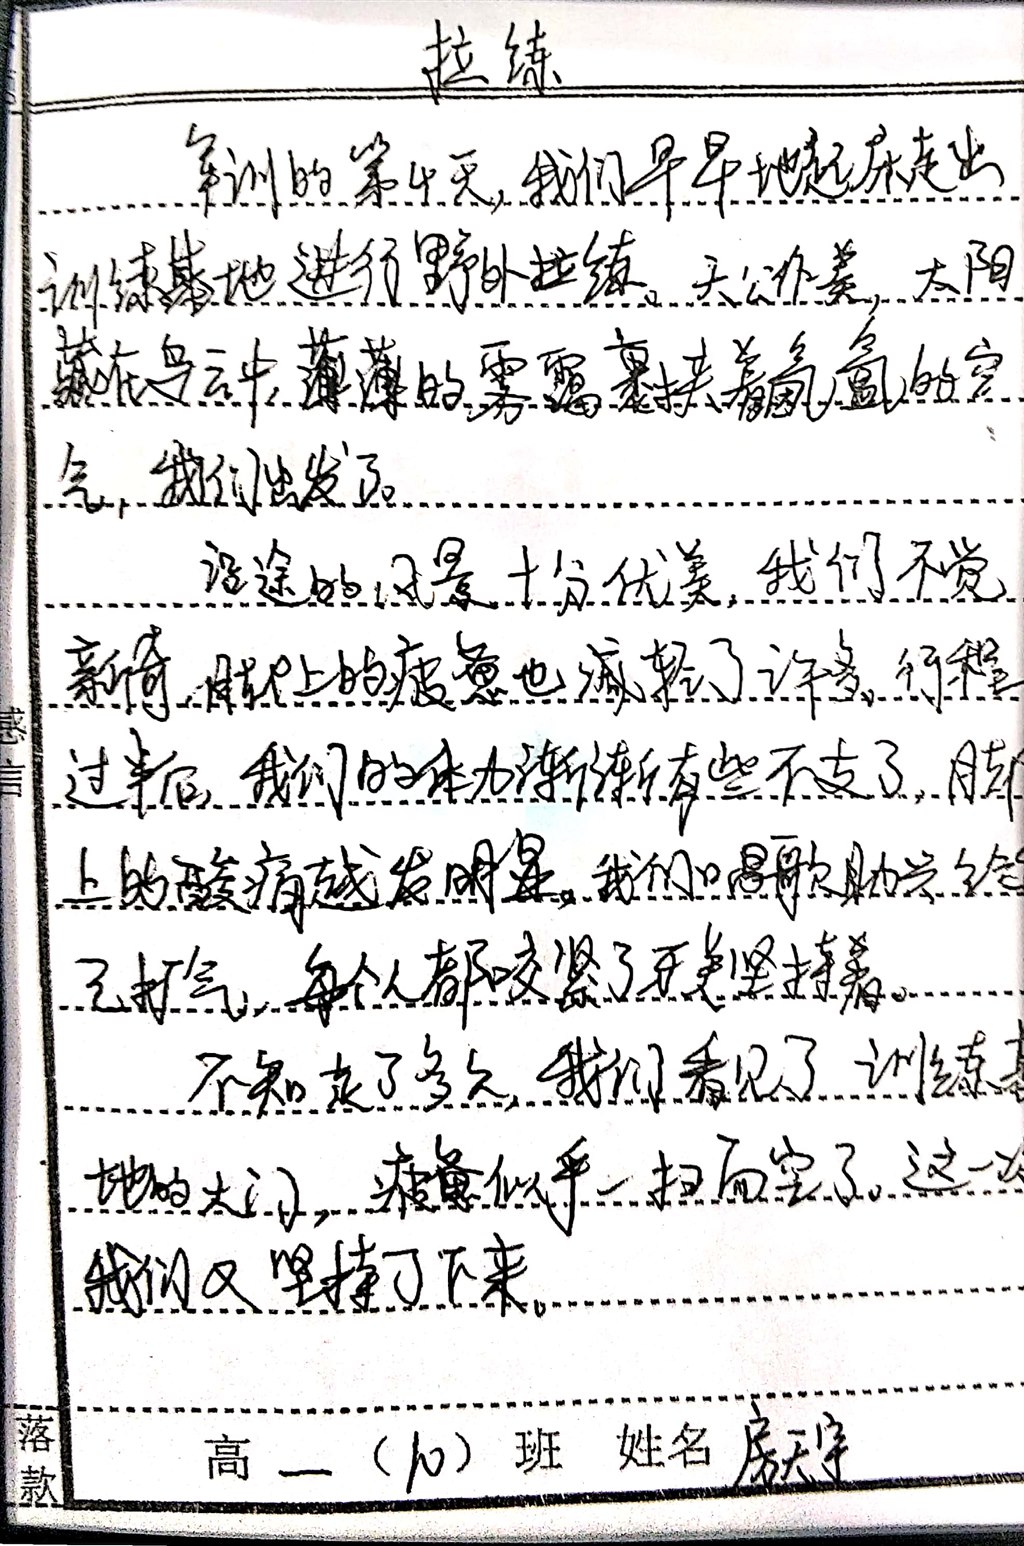 拉练
军训的第4天,我们早早地起床走出
训练基地进行野外拉练。天公作美,太阳
藏在乌云中,薄薄的雾霭裹挟着氤氲的空
气,我们出发了。
沿途的风景十分优美,我们不觉
新奇,脚上的疲惫也减轻了许多。行程
过半后,我们的体力渐渐有些不支了,脚
上的酸痛越发明显。我们唱歌助兴给
己打气,每个人都咬紧了牙关坚持着。
不知走了多久,我们看见了训练基
地的大门,疲惫似乎一扫而空了。这一次
我们又坚持了下来。
感言
落款
高一(10)班 姓名 房天宇